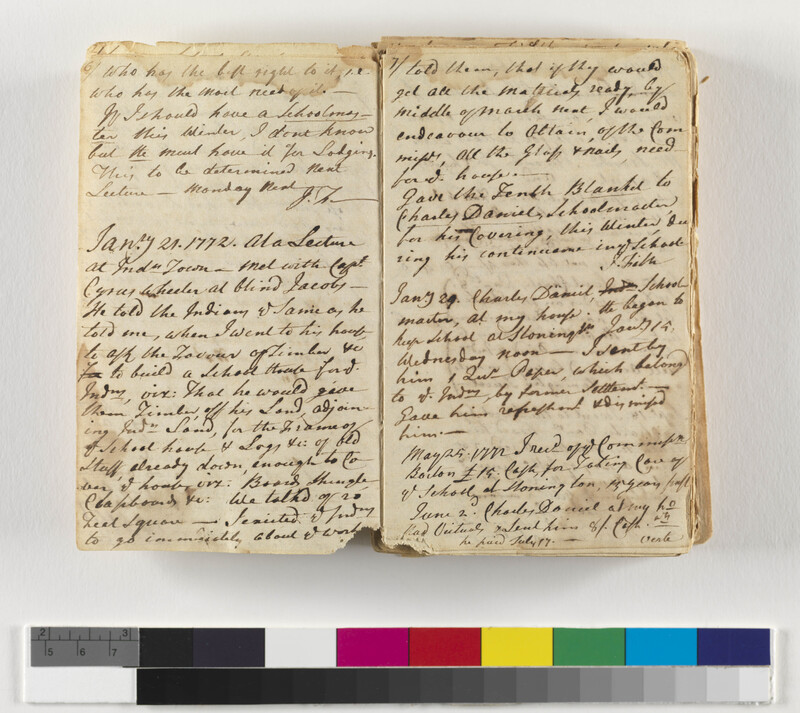 6/ who has the best right to it, i.e.
who has the most need of it. —
If I should have a Schoolmas-
ter this Winter, I dont know
but He must have it for Lodging.
This to be determined Next
Lecture — Monday Next
J. F.
Jan.ry 21. 1772. At a Lecture
at Ind.n Town — Met with Capt.
Cyrus Wheeler at blind Jacobs —
He told the Indians ye Same as he
told me, when I went to his house
to ask the Favour of Timber &c
to build a School House for ye
Ind.ns, viz: That he would give
them Timber off his Land, adjoin-
ing Ind.n Land, for the Frame of
ye School house & Logs &c: of old
Stuff, already down, enough to Co-
ver ye house viz: Boards, Shingle,
Clapboards &c: We talk'd of 20
Feet Square — I excited ye Ind.ns
to go immediately about ye Work
7/ told them, that if they would
get all the Materials ready, by
middle of March next, I would
endeavour to Obtain, of the Com-
miss.rs, All the Glass & nails, need-
for ye house. —
Gave the Tenth Blanket to
Charles Daniel, Schoolmaster,
for his Covering, this Winter, du-
ring his continuance in ye School
J. Fish
Jan.ry 29. Charles Daniel, Ind.n School-
master, at my house. He began to
keep School at Stoningtn. Jan.ry 15.
Wednesday noon — I sent by
him 1 Qur. Paper, which belong'd
to ye Ind.ns, by former Settlemt. —
Gave him refreshmt. & dismiss'd
him. —
May 25. 1772 I rec'd of ye Commissrs.
Boston £15. Cash, for Taking Care of
ye School, at Stonington,
June 2d. Charles Daniel at my ho
Had Victuals & Lent him 8/. Cash.
he paid July 17. — verte